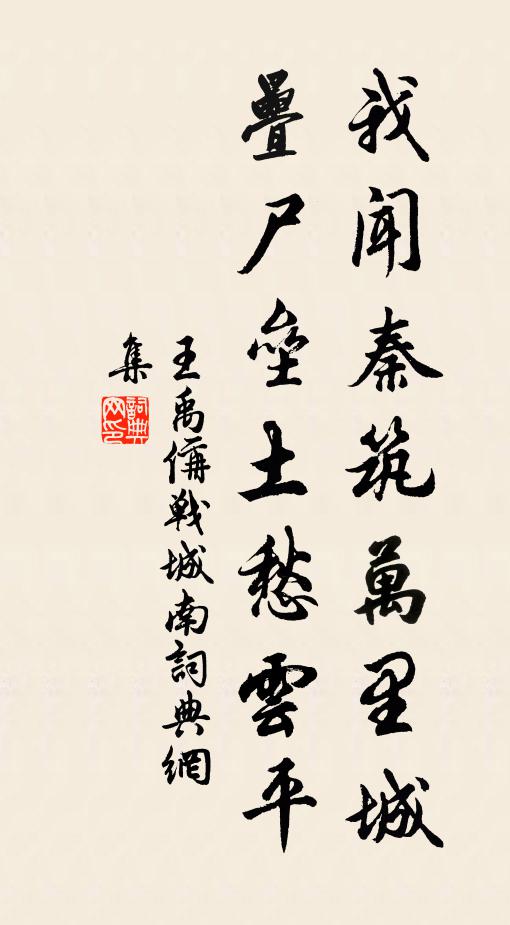 我闻秦筑萬里城
疊尸壘土愁雲平
王禹偁戰城南詞典網
集
詞典
网印